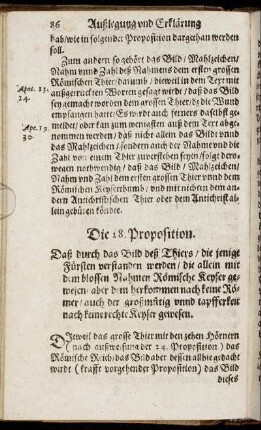 86 Außlegung vnd Erklärung
dah/wie in folgender Proposition dargethan werden
soll.
Zum andern so gehört das Bild/Mahlzeichen/
Nahm vnnd Zahl deß Nahmens dem ersten grossen
Römischen Thier/darumb/dieweil in dem Text mit
Apoc. 13.
14.
außgetruckten Worten gesagt wird/daß das Bild
sey gemacht worden dem grossen Thier/dz die Wund
empfangen hatte: Es wirdt auch ferners daselbst ge-
meldet/oder kan zum wenigsten auß dem Text abge-
Apc. 19.
20.
nommen werden/daß nicht allein das Bildt vnnd
das Mahlzeichen/sondern auch der Nahme vnd die
Zahl von einem Thier zuverstehen seyn/folgt dero-
wegen nothwendig/daß das Bild/Mahlzeichen/
Nahm vnd Zahl dem ersten grossen Thier vnnd dem
Römischen Keyserthumb/vnd mit nichten dem an-
dern Antichristischen Thier oder dem Antichrist al-
lein gebüren könne.
Die 18. Proposition.
Daß durch das Bild deß Thiers/die jenige
Fürsten verstanden werden/die allein mit
dem blossen Nahmen Römische Keyser ge-
wezen/aber dem herkommen nach keine Rö-
mer/auch der großmütig vnnd tapfferkeit
nach keine rechte Keyser gewesen.
DJeweil das grosse Thier mit den zehen Hörnern
(nach außweisung der 24. Proposition) das
Römische Reich/das Bild aber dessen allhie gedacht
wirdt (krafft vorgehender Proposition) das Bild
dieses